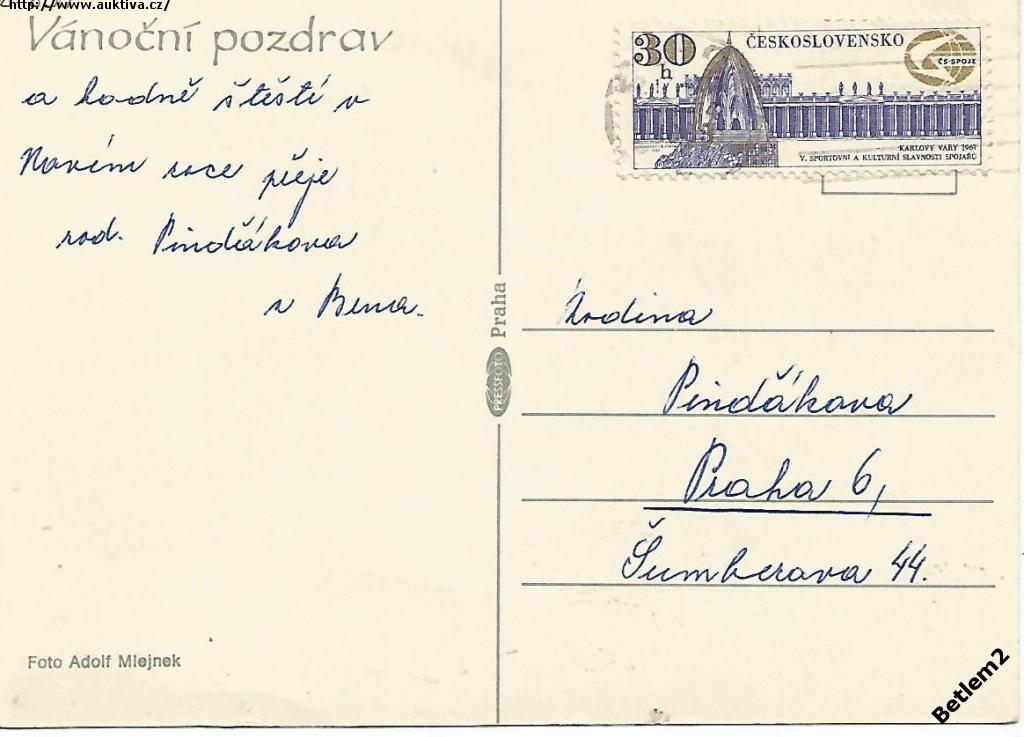 http://www.auktiva.cz/
Vánoční pozdrav
a hodně štěstí v
Novém roce přeje
rod. Pindákova
z Brna.
Foto Adolf Mlejnek
PRESSFOTO Praha
30 h
ČESKOSLOVENSKO
ČS·SPOJE
KARLOVY VARY 1967
V. SPORTOVNÍ A KULTURNÍ SLAVNOSTI SPOJAŘŮ
Rodina
Pinďákova
Praha 6,
Šumberova 44.
Betlem2